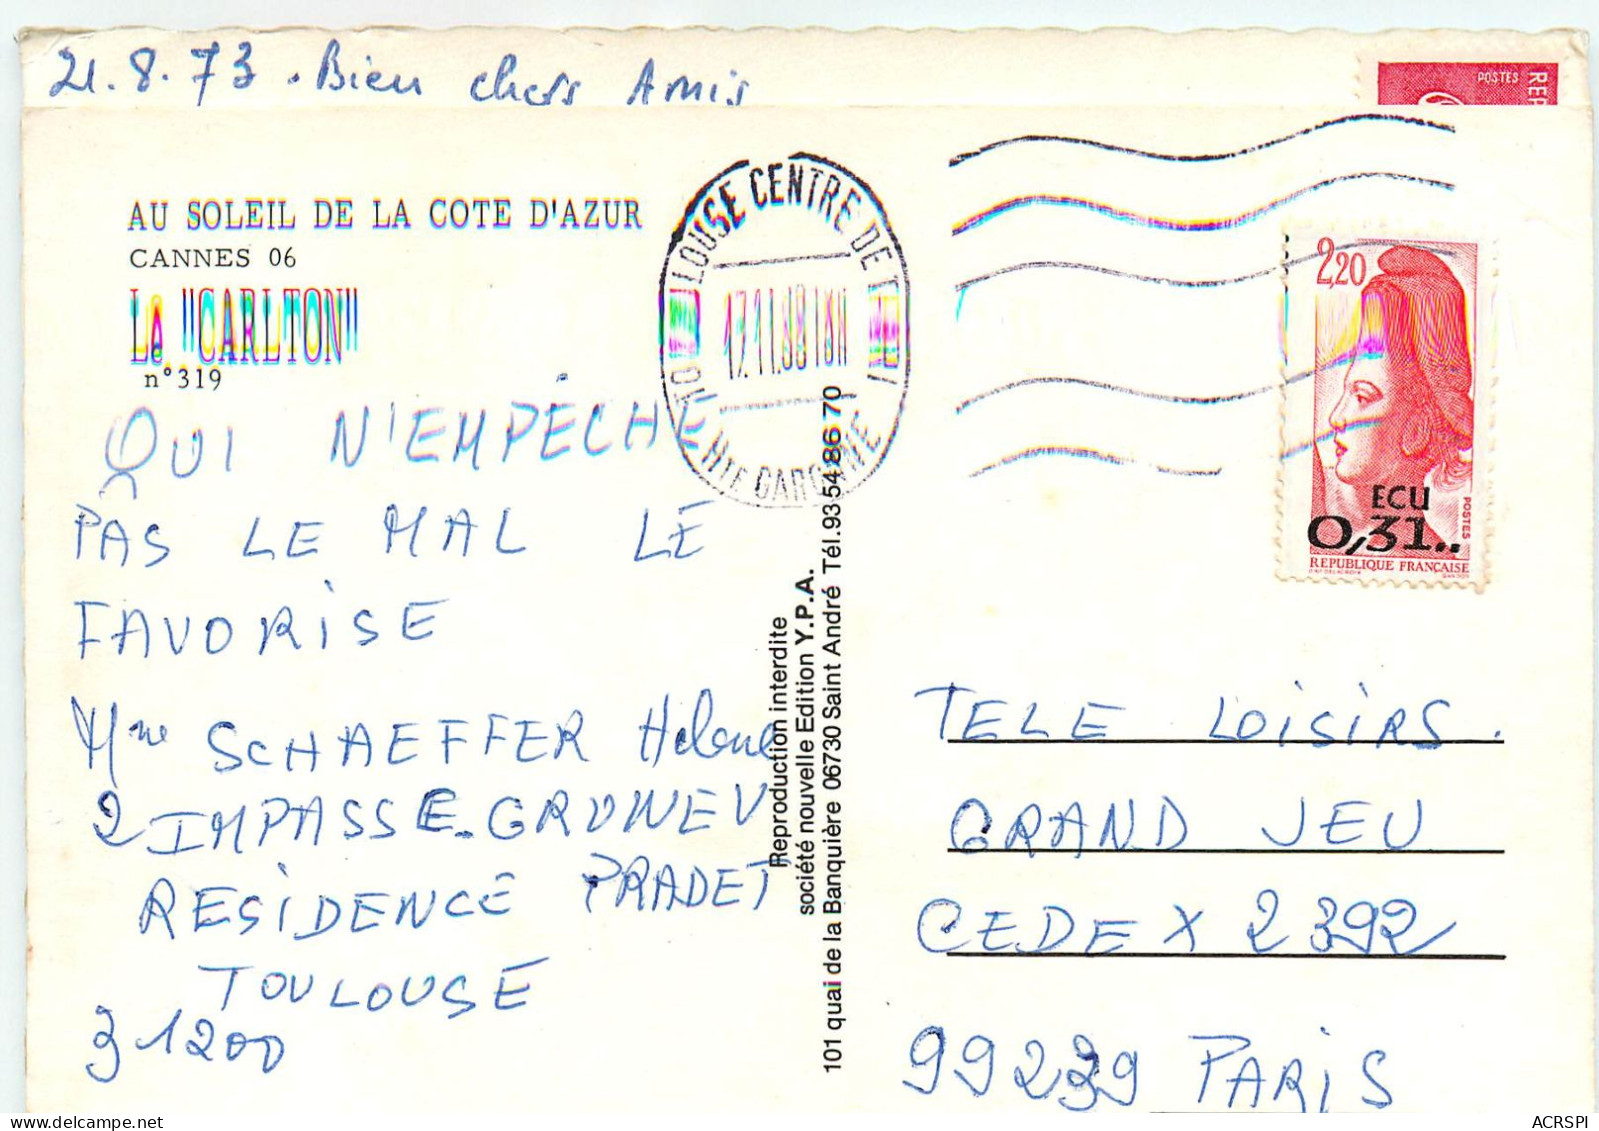 21.8.73. Bien chers Amis
POSTES
REP
AU SOLEIL DE LA COTE D'AZUR
CANNES 06
Le "CARLTON"
n°319
QUI N'EMPÊCHE
PAS LE MAL LE
FAVORISE
Mme SCHAEFFER Helene
2 IMPASSE GRUNEV
RESIDENCE PRADET
TOULOUSE
31200
TOULOUSE CENTRE DE TRI
17.11.88 18H
Hte GARONNE
Reproduction interdite
société nouvelle Edition Y.P.A.
101 quai de la Banquière 06730 Saint André Tél.93 54 86 70
2,20
ECU
0,31..
POSTES
REPUBLIQUE FRANÇAISE
TELE LOISIRS.
GRAND JEU
CEDEX 2392
99239 PARIS
ACRSPI